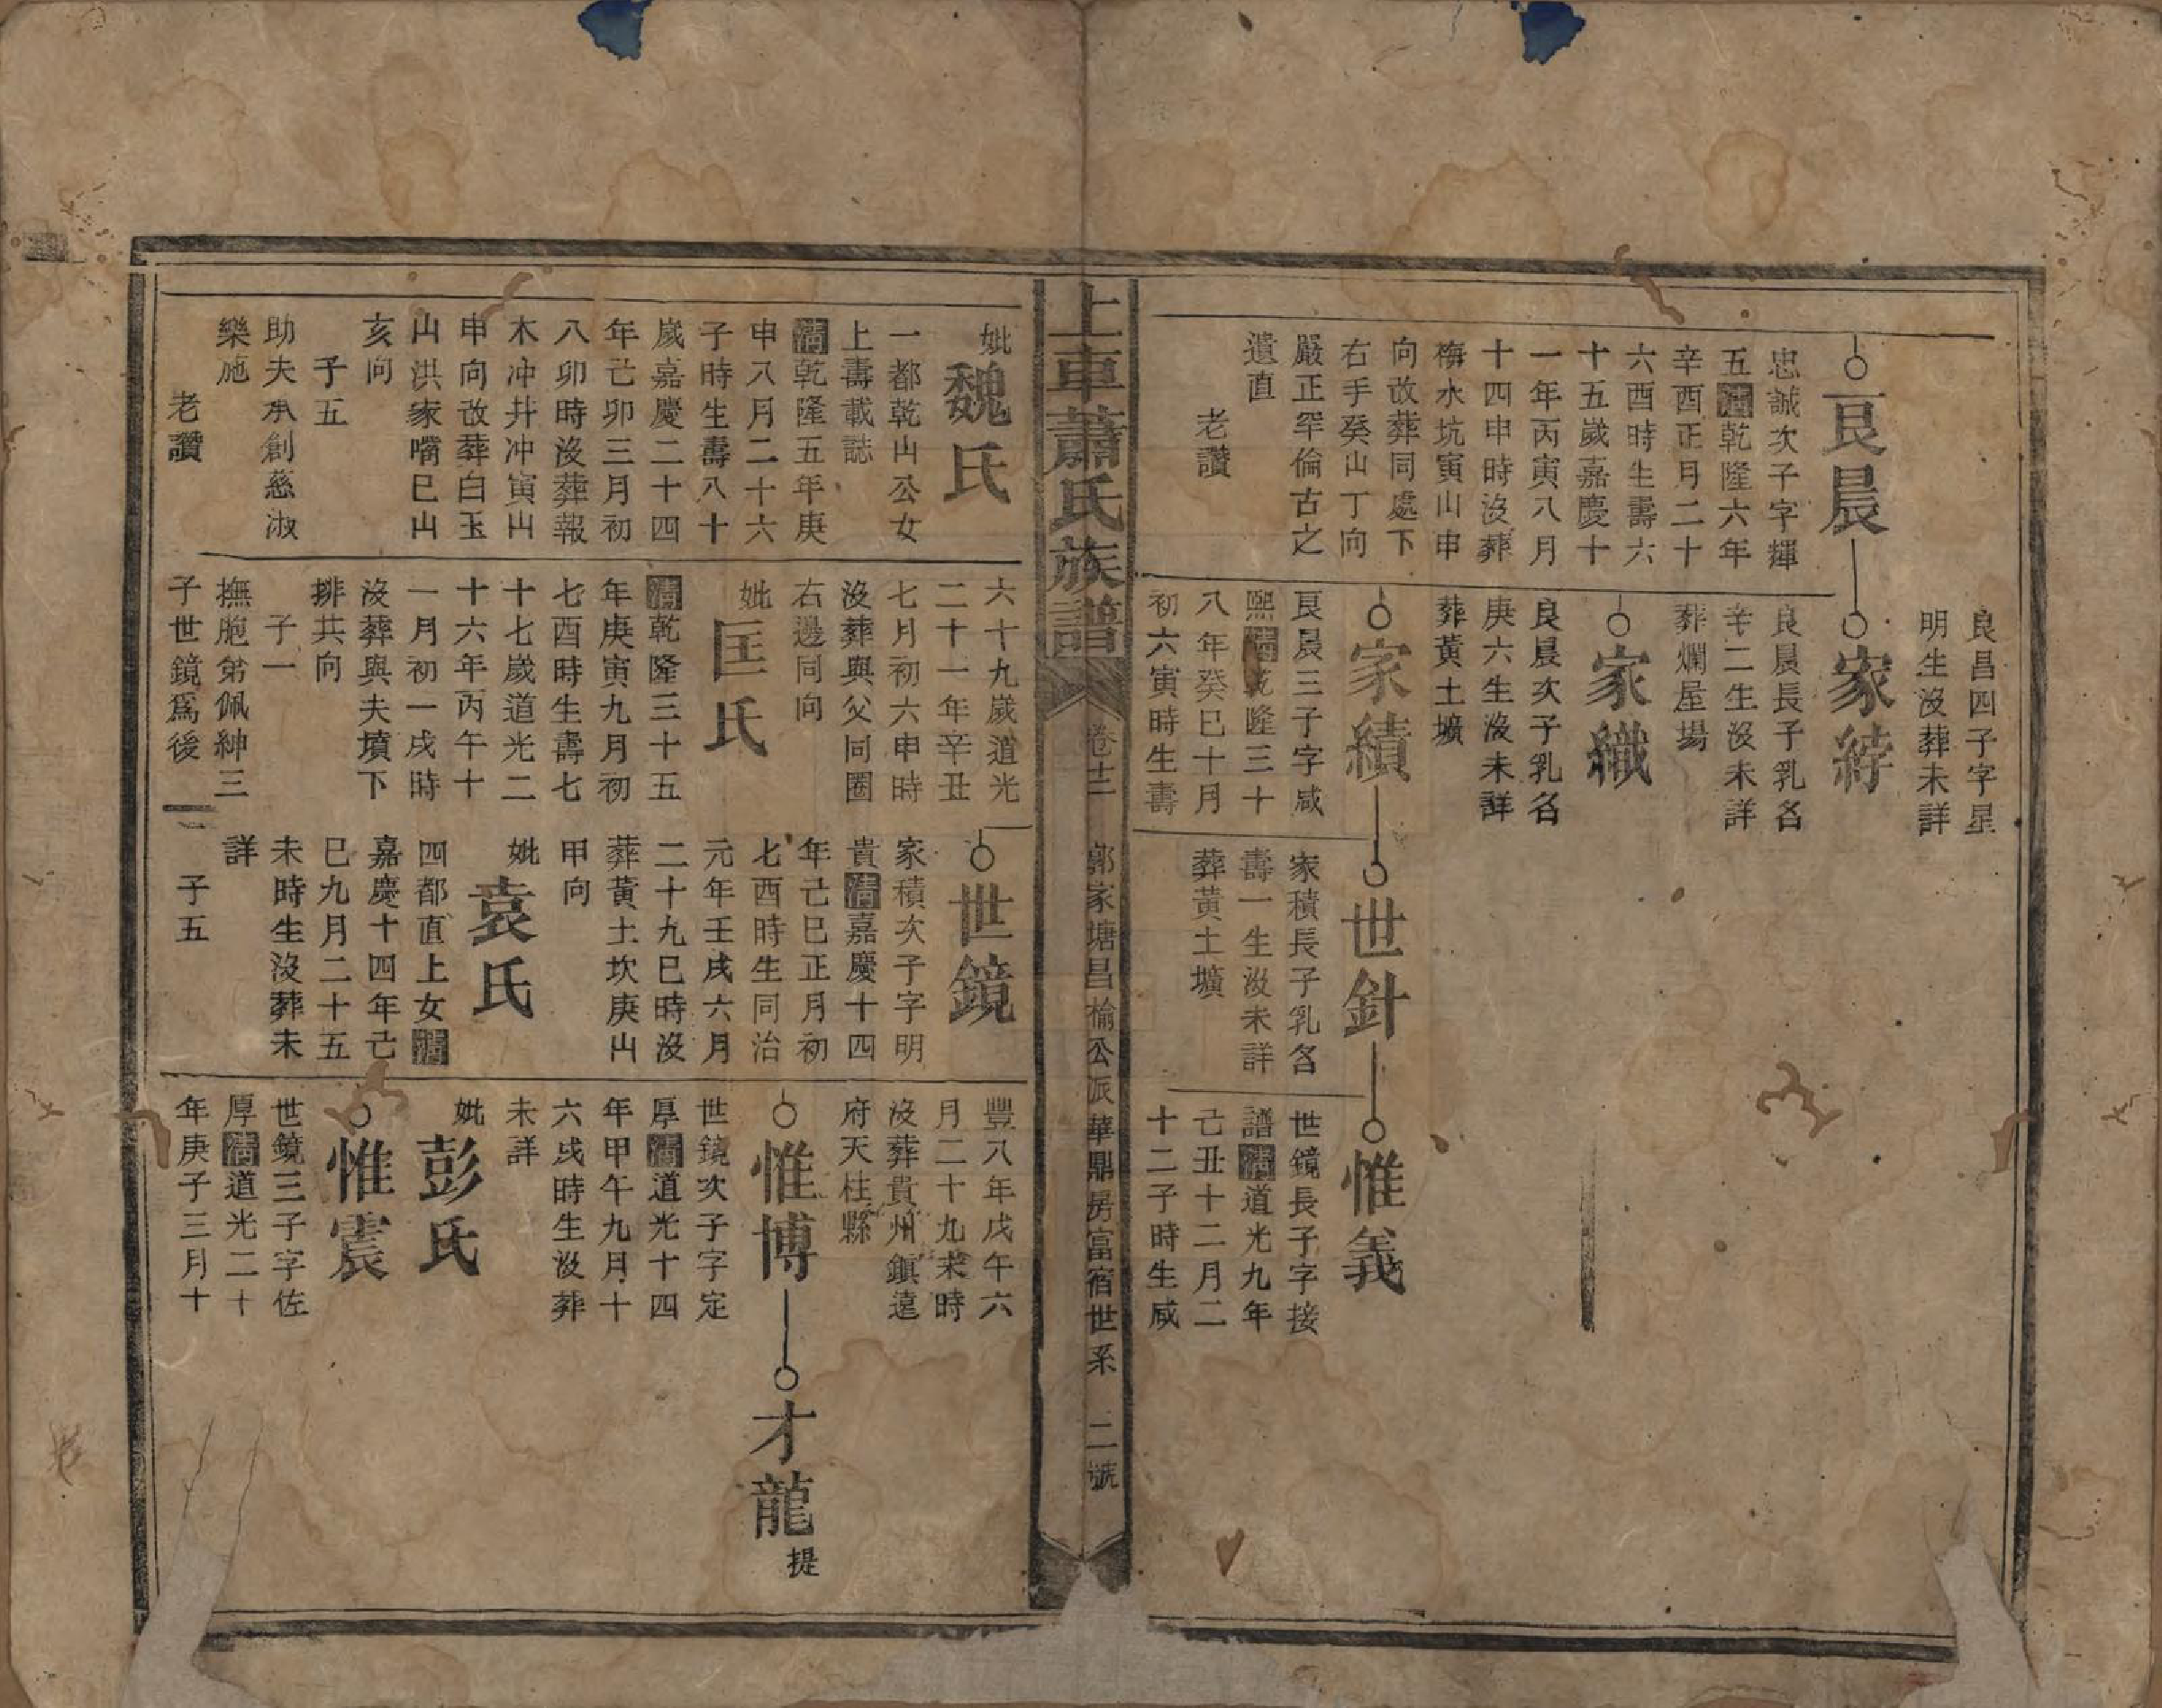 良昌四子字星
明生沒葬未詳
良晨
忠誠次子字輝
五清乾隆六年
辛酉正月二十
六酉時生壽六
十五歲嘉慶十
一年丙寅八月
十四申時沒葬
梅水坑寅山申
向改葬同處下
右手癸山丁向
嚴正罕倫古之
遺直
老讚
家綍
良晨長子乳名
辛二生沒未詳
葬爛屋場
家織
良晨次子乳名
庚六生沒未詳
葬黃土壙
家績
良晨三子字咸
熙清乾隆三十
八年癸巳十月
初六寅時生壽
世針
家積長子乳名
壽一生沒未詳
葬黃土壙
惟義
世鏡長子字接
譜清道光九年
己丑十二月二
十二子時生咸
上車蕭氏族譜
卷廿二
郭家塘昌楡公派華鼎房富宿世系
二號
妣
魏氏
一都乾山公女
上壽載誌
清乾隆五年庚
申八月二十六
子時生壽八十
歲嘉慶二十四
年己卯三月初
八卯時沒葬報
木冲井冲寅山
申向改葬白玉
山洪家嘴巳山
亥向
子五
助夫承創慈淑
樂施
老讚
六十九歲道光
二十一年辛丑
七月初六申時
沒葬與父同圈
右邊同向
妣
匡氏
清乾隆三十五
年庚寅九月初
七酉時生壽七
十七歲道光二
十六年丙午十
一月初一戌時
沒葬與夫墳下
排共向
子一
撫胞弟佩紳三
子世鏡爲後
世鏡
家積次子字明
貴清嘉慶十四
年己巳正月初
七酉時生同治
元年壬戌六月
二十九巳時沒
葬黃土坎庚山
甲向
妣
袁氏
四都直上女清
嘉慶十四年己
巳九月二十五
未時生沒葬未
詳
子五
豐八年戊午六
月二十九未時
沒葬貴州鎮遠
府天柱縣
惟博
世鏡次子字定
厚清道光十四
年甲午九月十
六戌時生沒葬
未詳
妣
彭氏
惟震
世鏡三子字佐
厚清道光二十
年庚子三月十
才龍
提